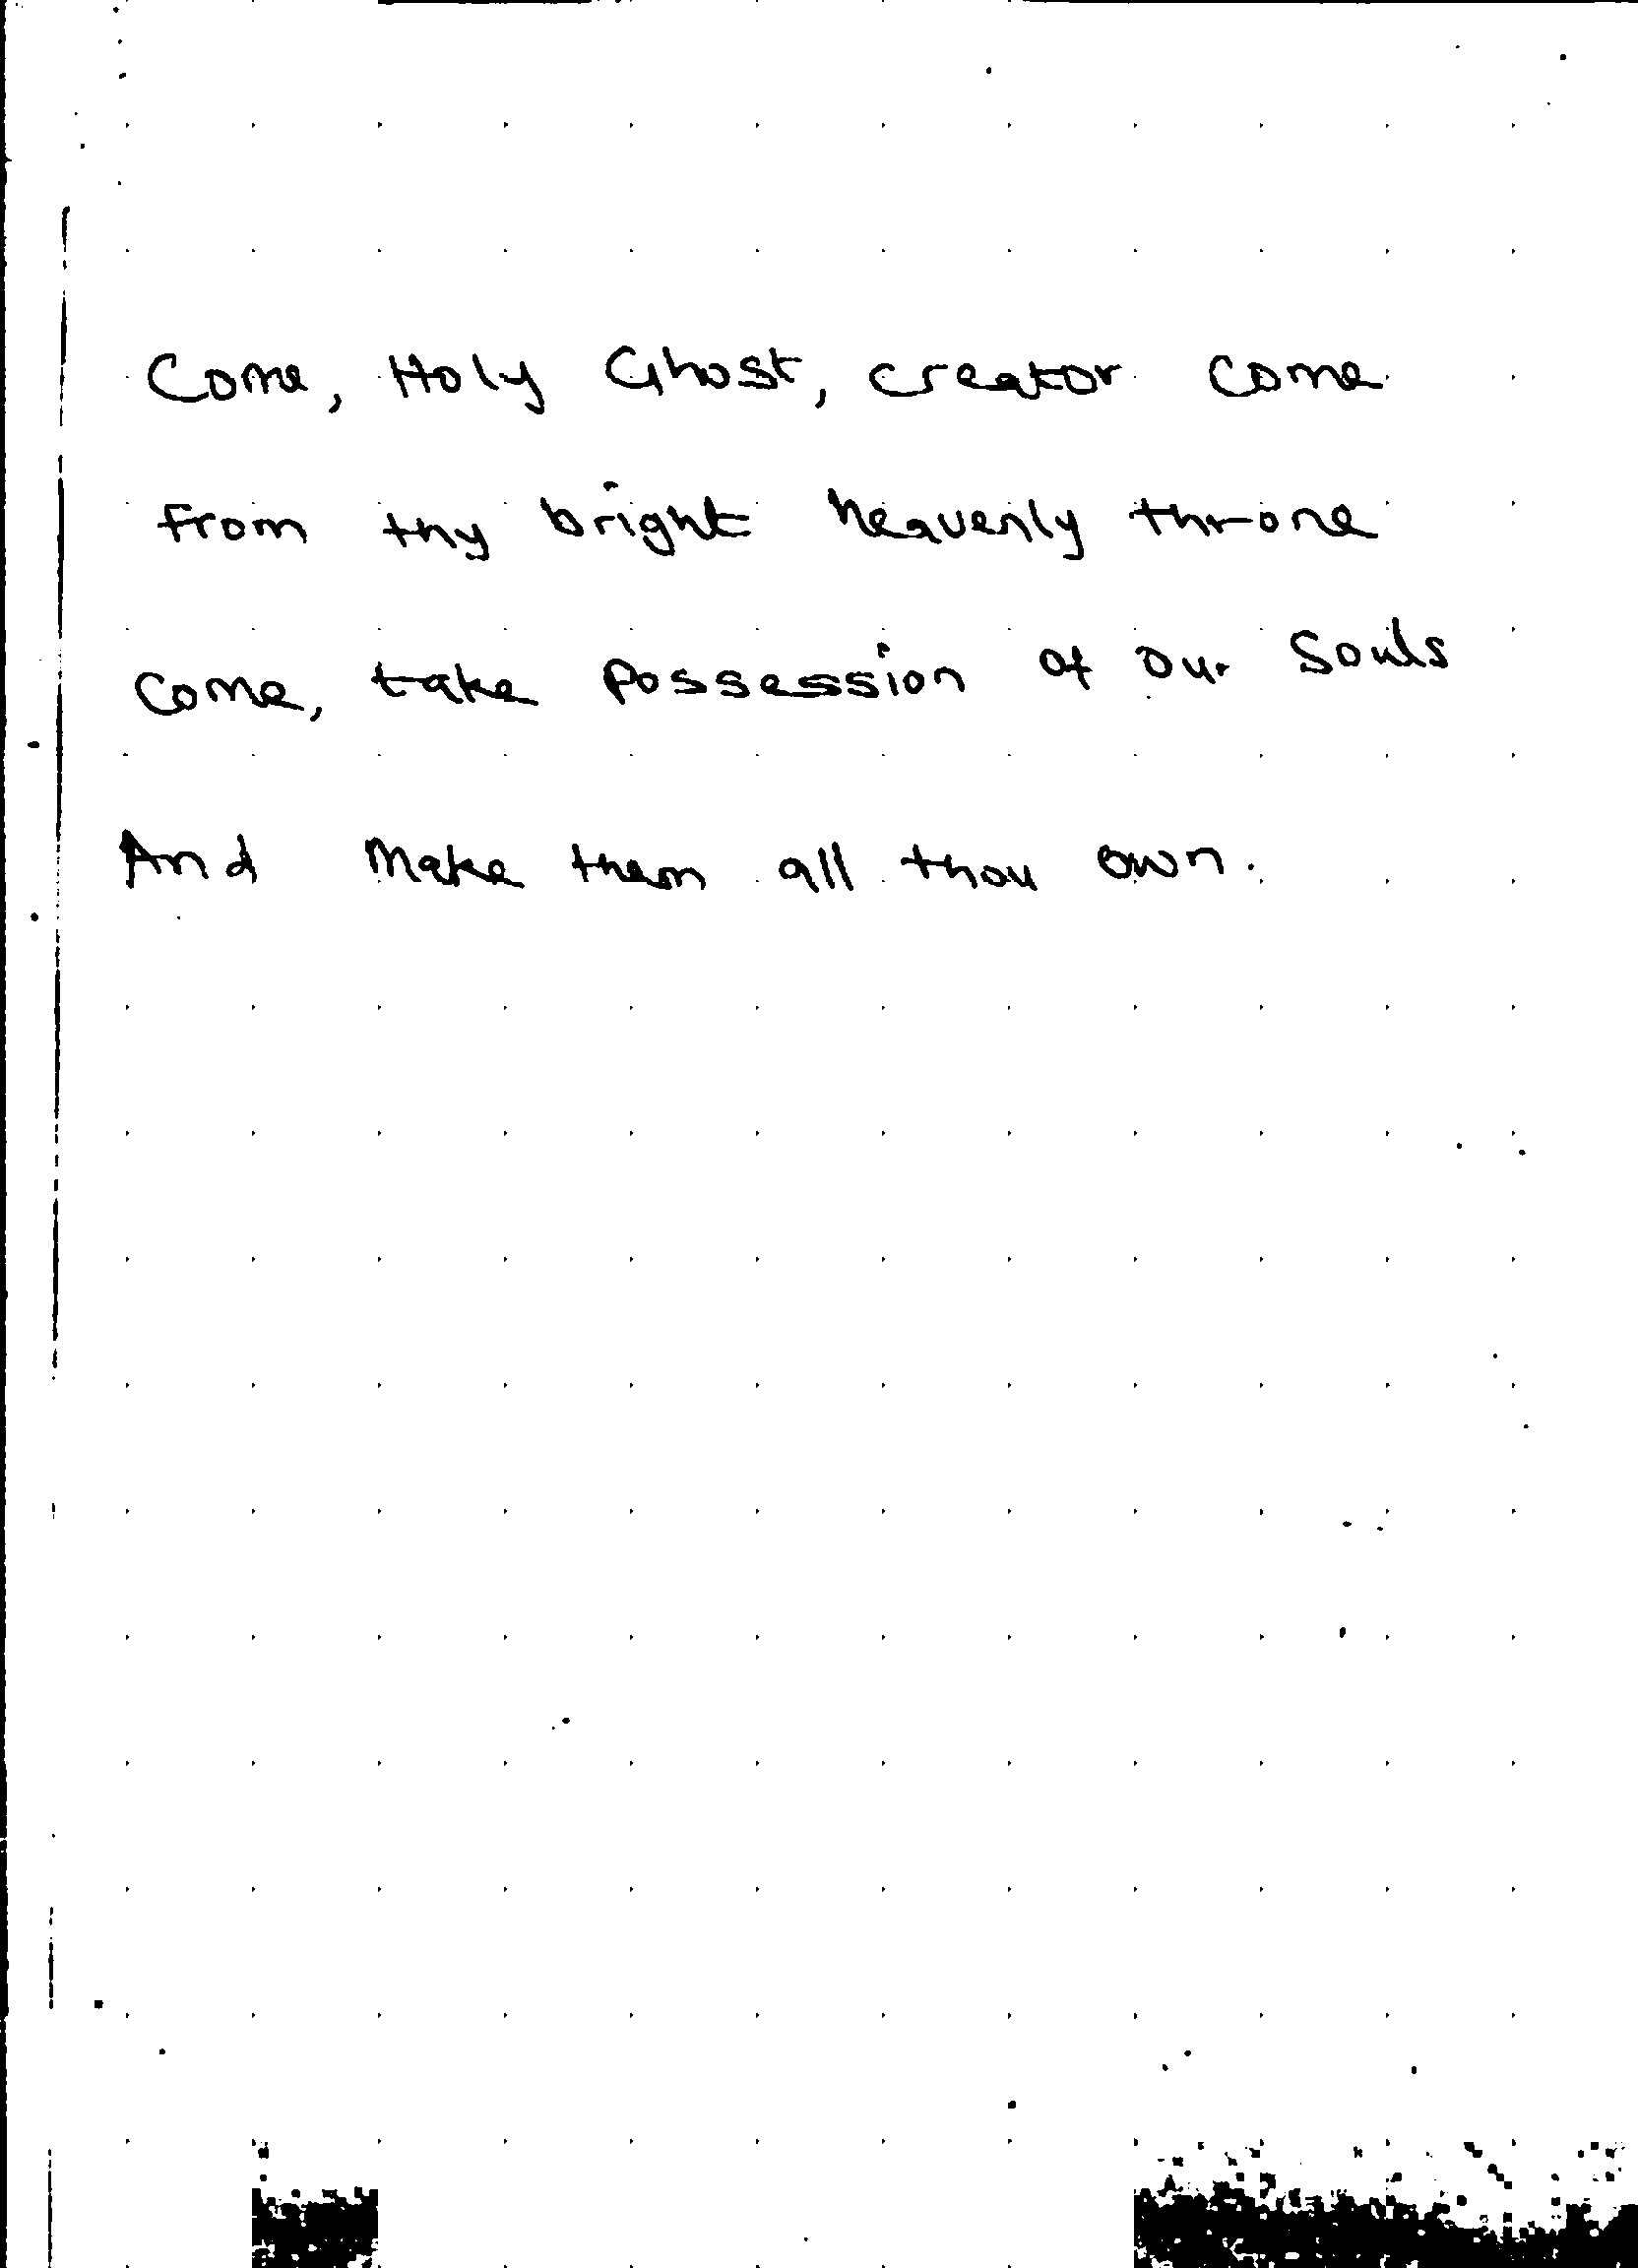 Come, Holy Ghost, creator come
from thy bright heavenly throne
come, take possession of our souls
And make them all thou own.